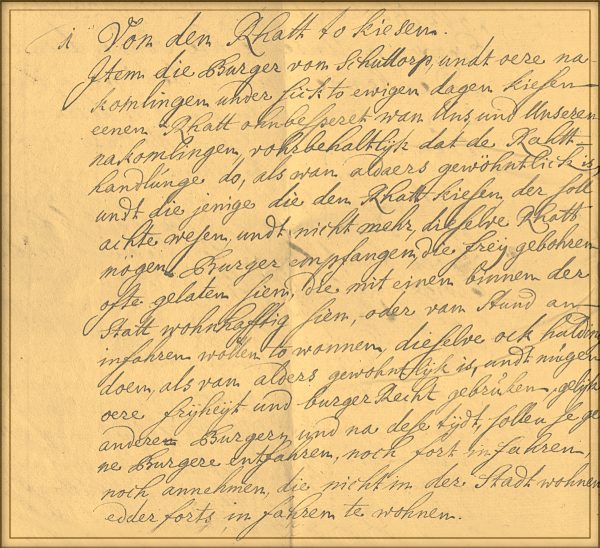 1 Von den Rhatt to kiesen.
Item die Burger von Schuttorp, undt oere na-
komlingen under sick to ewigen dagen kiesen
eenen Rhatt ohnbesperet wan Uns, und Unseren
nakomlingen, vohrbehaltlyk dat de Rahtt-
handlunge do, als wan aldaers gewöhntlick is,
undt die jenige die den Rhatt kiesen, der soll
achte wesen, undt nicht mehr, dieselve Rhatt
mögen Burger empfangen, die frey gebohren
ofte gelaten sien, die mit einem binnen der
Statt wohnhafftig sien, oder van Stund an
infahren wollen to wonnen, dieselve ock hulding
doen, als van alders gewohntlyk is, undt mugen
oere fryheyt und burger Recht gebrüken, gelyk
anderen Burgern, und na dese tydt, sollen se ge
ne Burgere entfahren, noch fort infahren,
noch annehmen, die nicht in der Stadt wohnen
edder forts in fahren te wohnen.